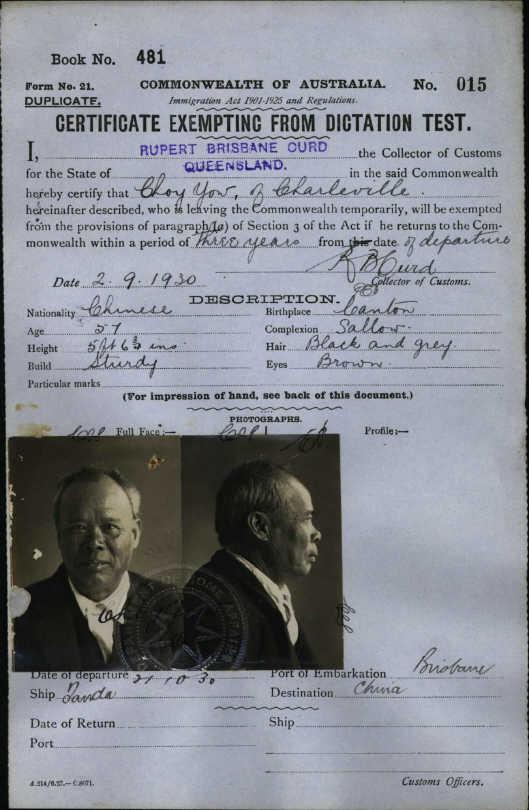 Book No. 481
Form No. 21. COMMONWEALTH OF AUSTRALIA. No. 015
DUPLICATE. Immigration Act 1901-1925 and Regulations.
CERTIFICATE EXEMPTING FROM DICTATION TEST.
I, RUPERT BRISBANE CURD the Collector of Customs
for the State of QUEENSLAND. in the said Commonwealth
hereby certify that Choy Yow, of Charleville.
hereinafter described, who is leaving the Commonwealth temporarily, will be exempted
from the provisions of paragraph (a) of Section 3 of the Act if he returns to the Com-
monwealth within a period of Three years from this date of departure
R B Curd
Date 2.9.1930 Collector of Customs.
DESCRIPTION.
Nationality Chinese Birthplace Canton
Age 57 Complexion Sallow.
Height 5 ft 6½ ins. Hair Black and grey.
Build Sturdy Eyes Brown.
Particular marks
(For impression of hand, see back of this document.)
PHOTOGRAPHS.
Full Face:— Profile:—
Date of departure 21 10 30 Port of Embarkation Brisbane
Ship Tanda Destination China
Date of Return Ship
Port
Customs Officers.